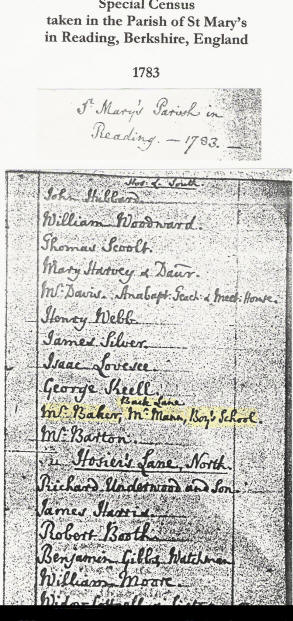 Special Census
taken in the Parish of St Mary's
in Reading, Berkshire, England
1783
St. Mary's Parish in
Reading. — 1783.
Hos: L. South.
John Hubbard
William Woodward.
Thomas Scoolt.
Mary Harvey & Daur.
Mr. Davis. Anabapt: Teach: & Meet: House.
Henry Webb
James Silver.
Isaac Lovesee.
George Skell
Back Lane
Mr. Baker, Mr. Mann, Boy's School.
Mr. Barton.
Hosier's Lane, North.
Richard Underwood and Son
James Harris
Robert Booth
Benjamin Gibbs Watchman
William Moore.